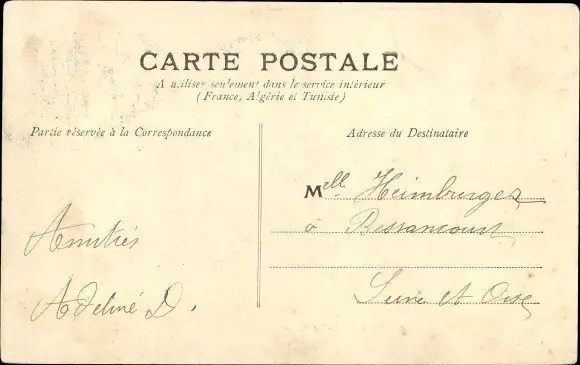 CARTE POSTALE
A utiliser seulement dans le service intérieur
(France, Algérie et Tunisie)
Partie réservée à la Correspondance
Adresse du Destinataire
Mell Heimburger
à Bessancourt
Seine et Oise
Amitiés
Adeline D.